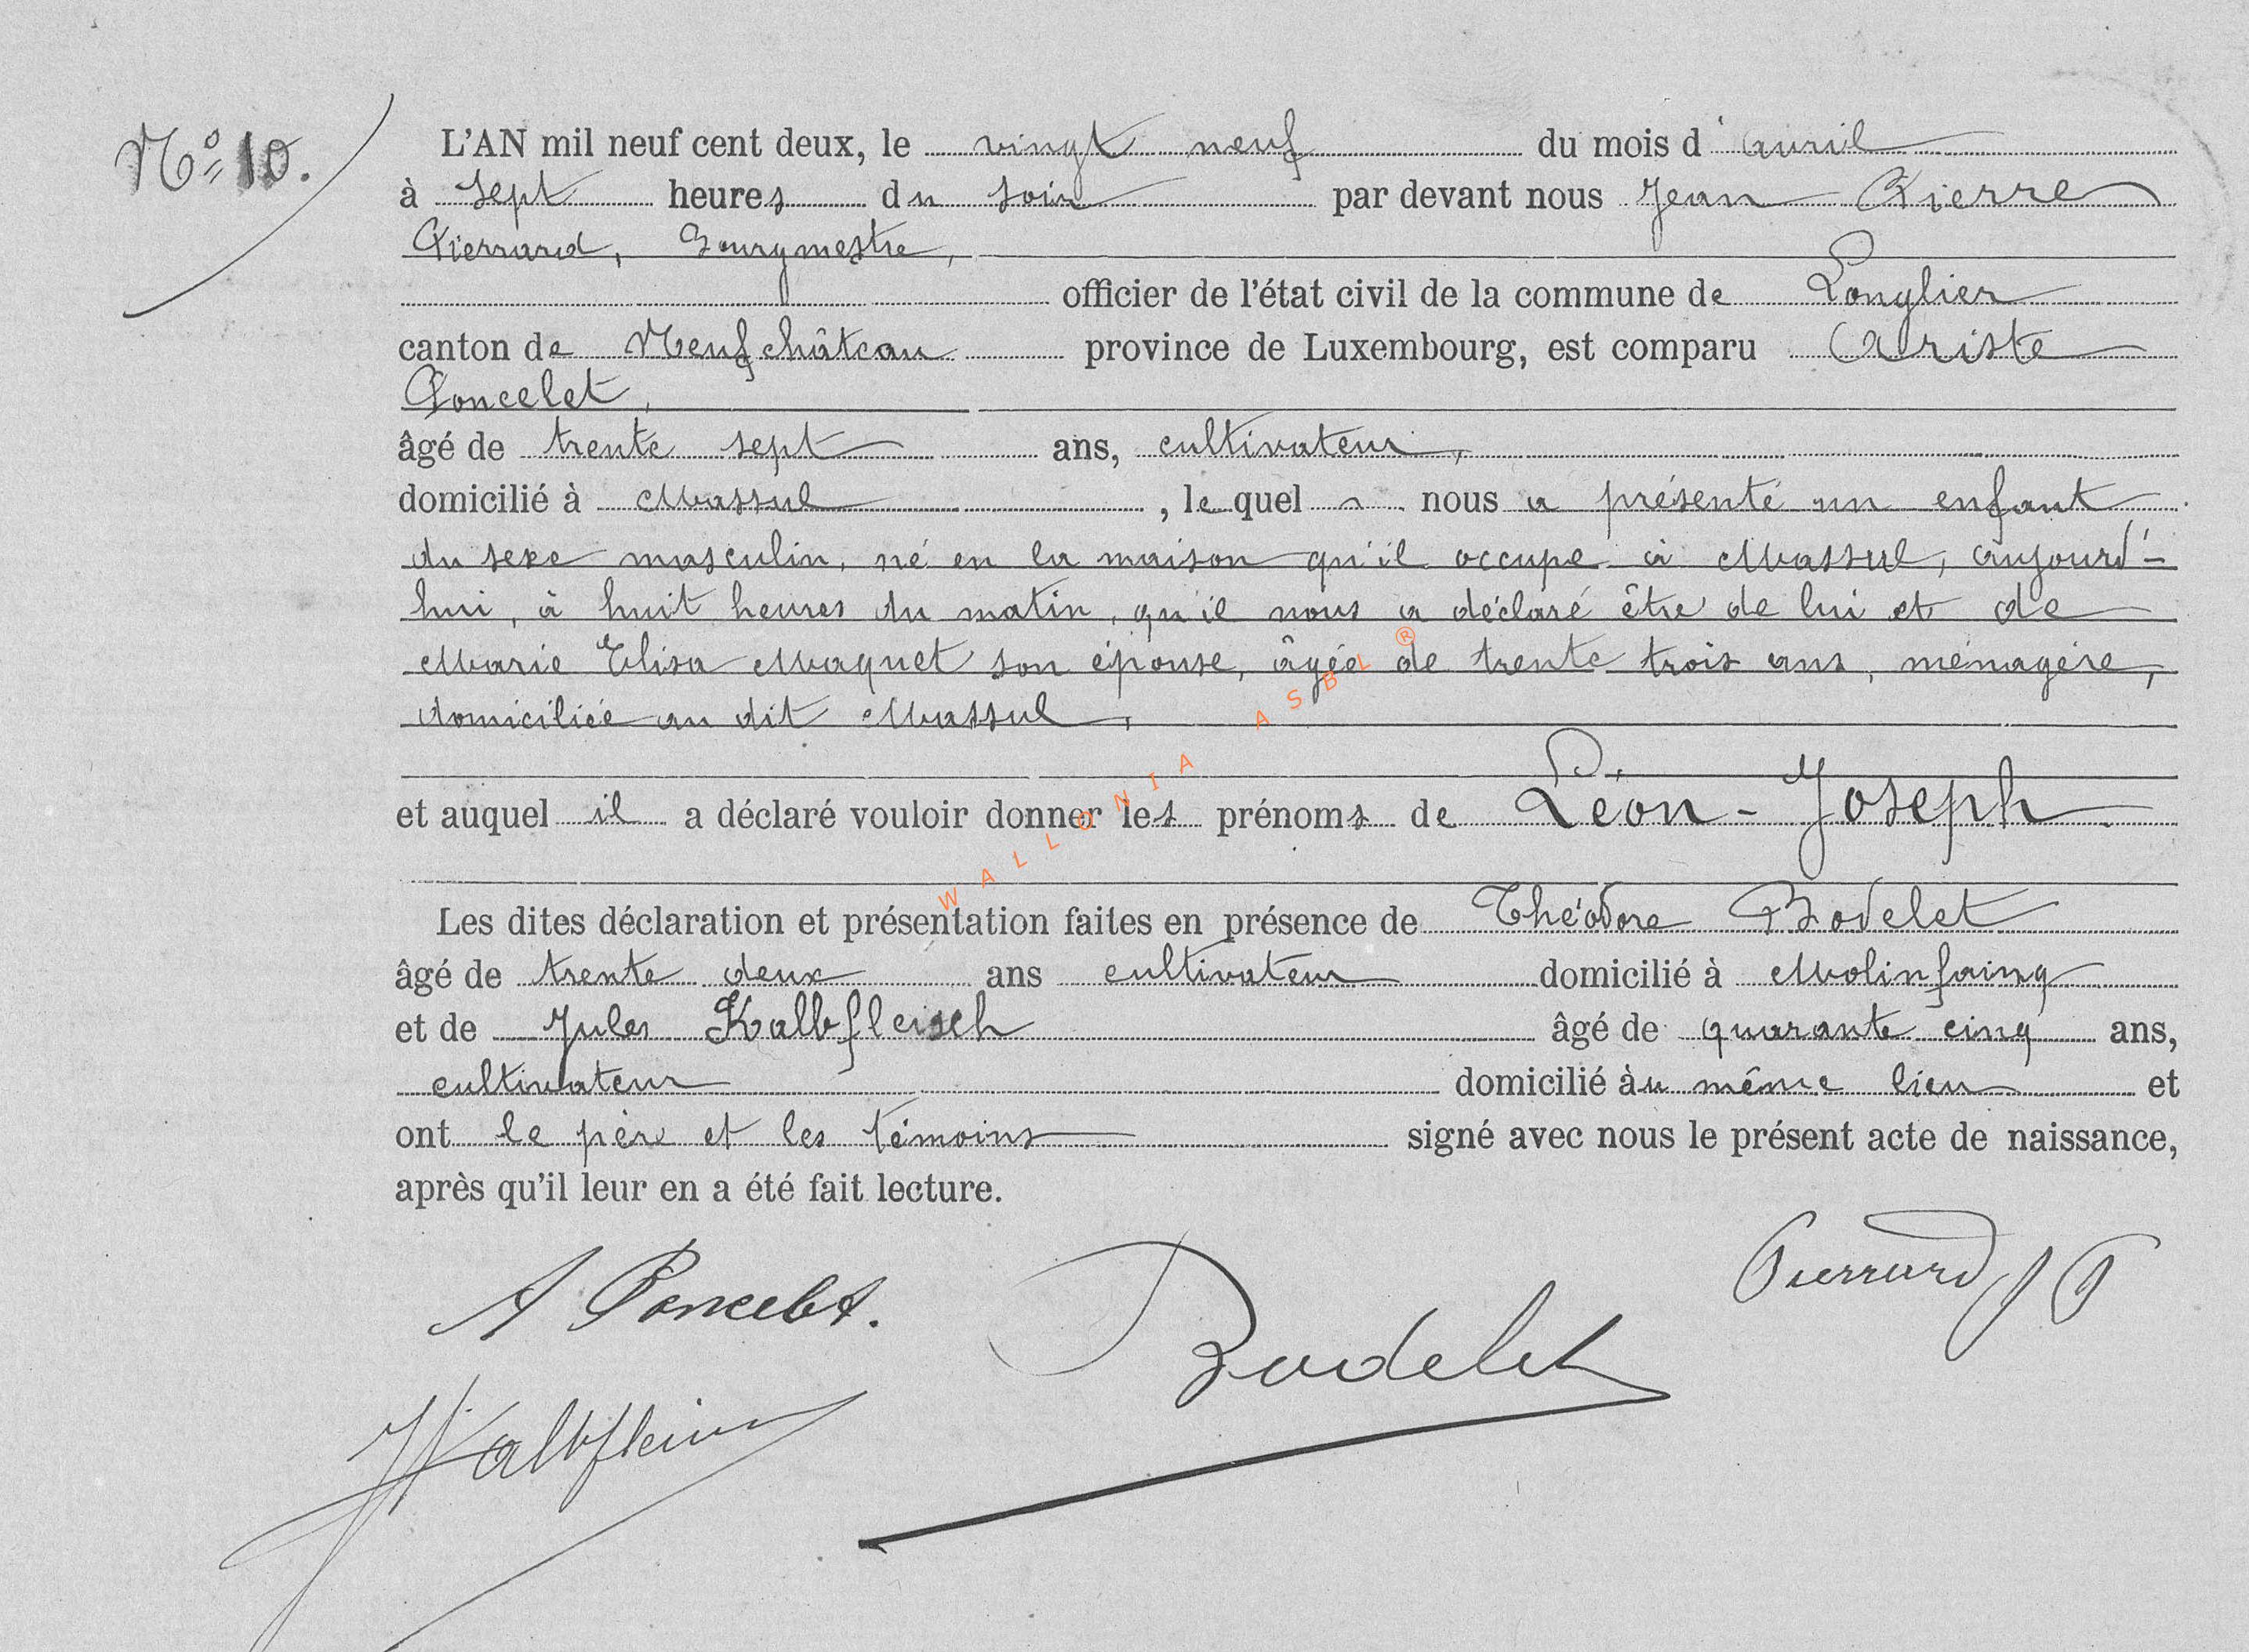 N° 10.
L'AN mil neuf cent deux, le vingt neuf du mois d'avril
à sept heures du soir par devant nous Jean Pierre
Pierrard, Bourgmestre,
officier de l'état civil de la commune de Longlier
canton de Neufchâteau province de Luxembourg, est comparu Ariste
Poncelet,
âgé de trente sept ans, cultivateur,
domicilié à Massul, lequel nous a présenté un enfant
du sexe masculin, né en la maison qu'il occupe à Massul, aujourd'-
hui, à huit heures du matin, qu'il nous a déclaré être de lui et de
Marie Elisa Maquet son épouse, âgée de trente trois ans, ménagère,
domiciliée au dit Massul,
et auquel il a déclaré vouloir donner les prénoms de Léon-Joseph.
Les dites déclaration et présentation faites en présence de Théodore Bodelet
âgé de trente deux ans cultivateur domicilié à Molinfaing
et de Jules Kalbfleisch âgé de quarante cinq ans,
cultivateur domicilié au même lieu et
ont le père et les témoins signé avec nous le présent acte de naissance,
après qu'il leur en a été fait lecture.
A Poncelet.
Pierrard JP
Bodelet
WALLONIA ASBL ®